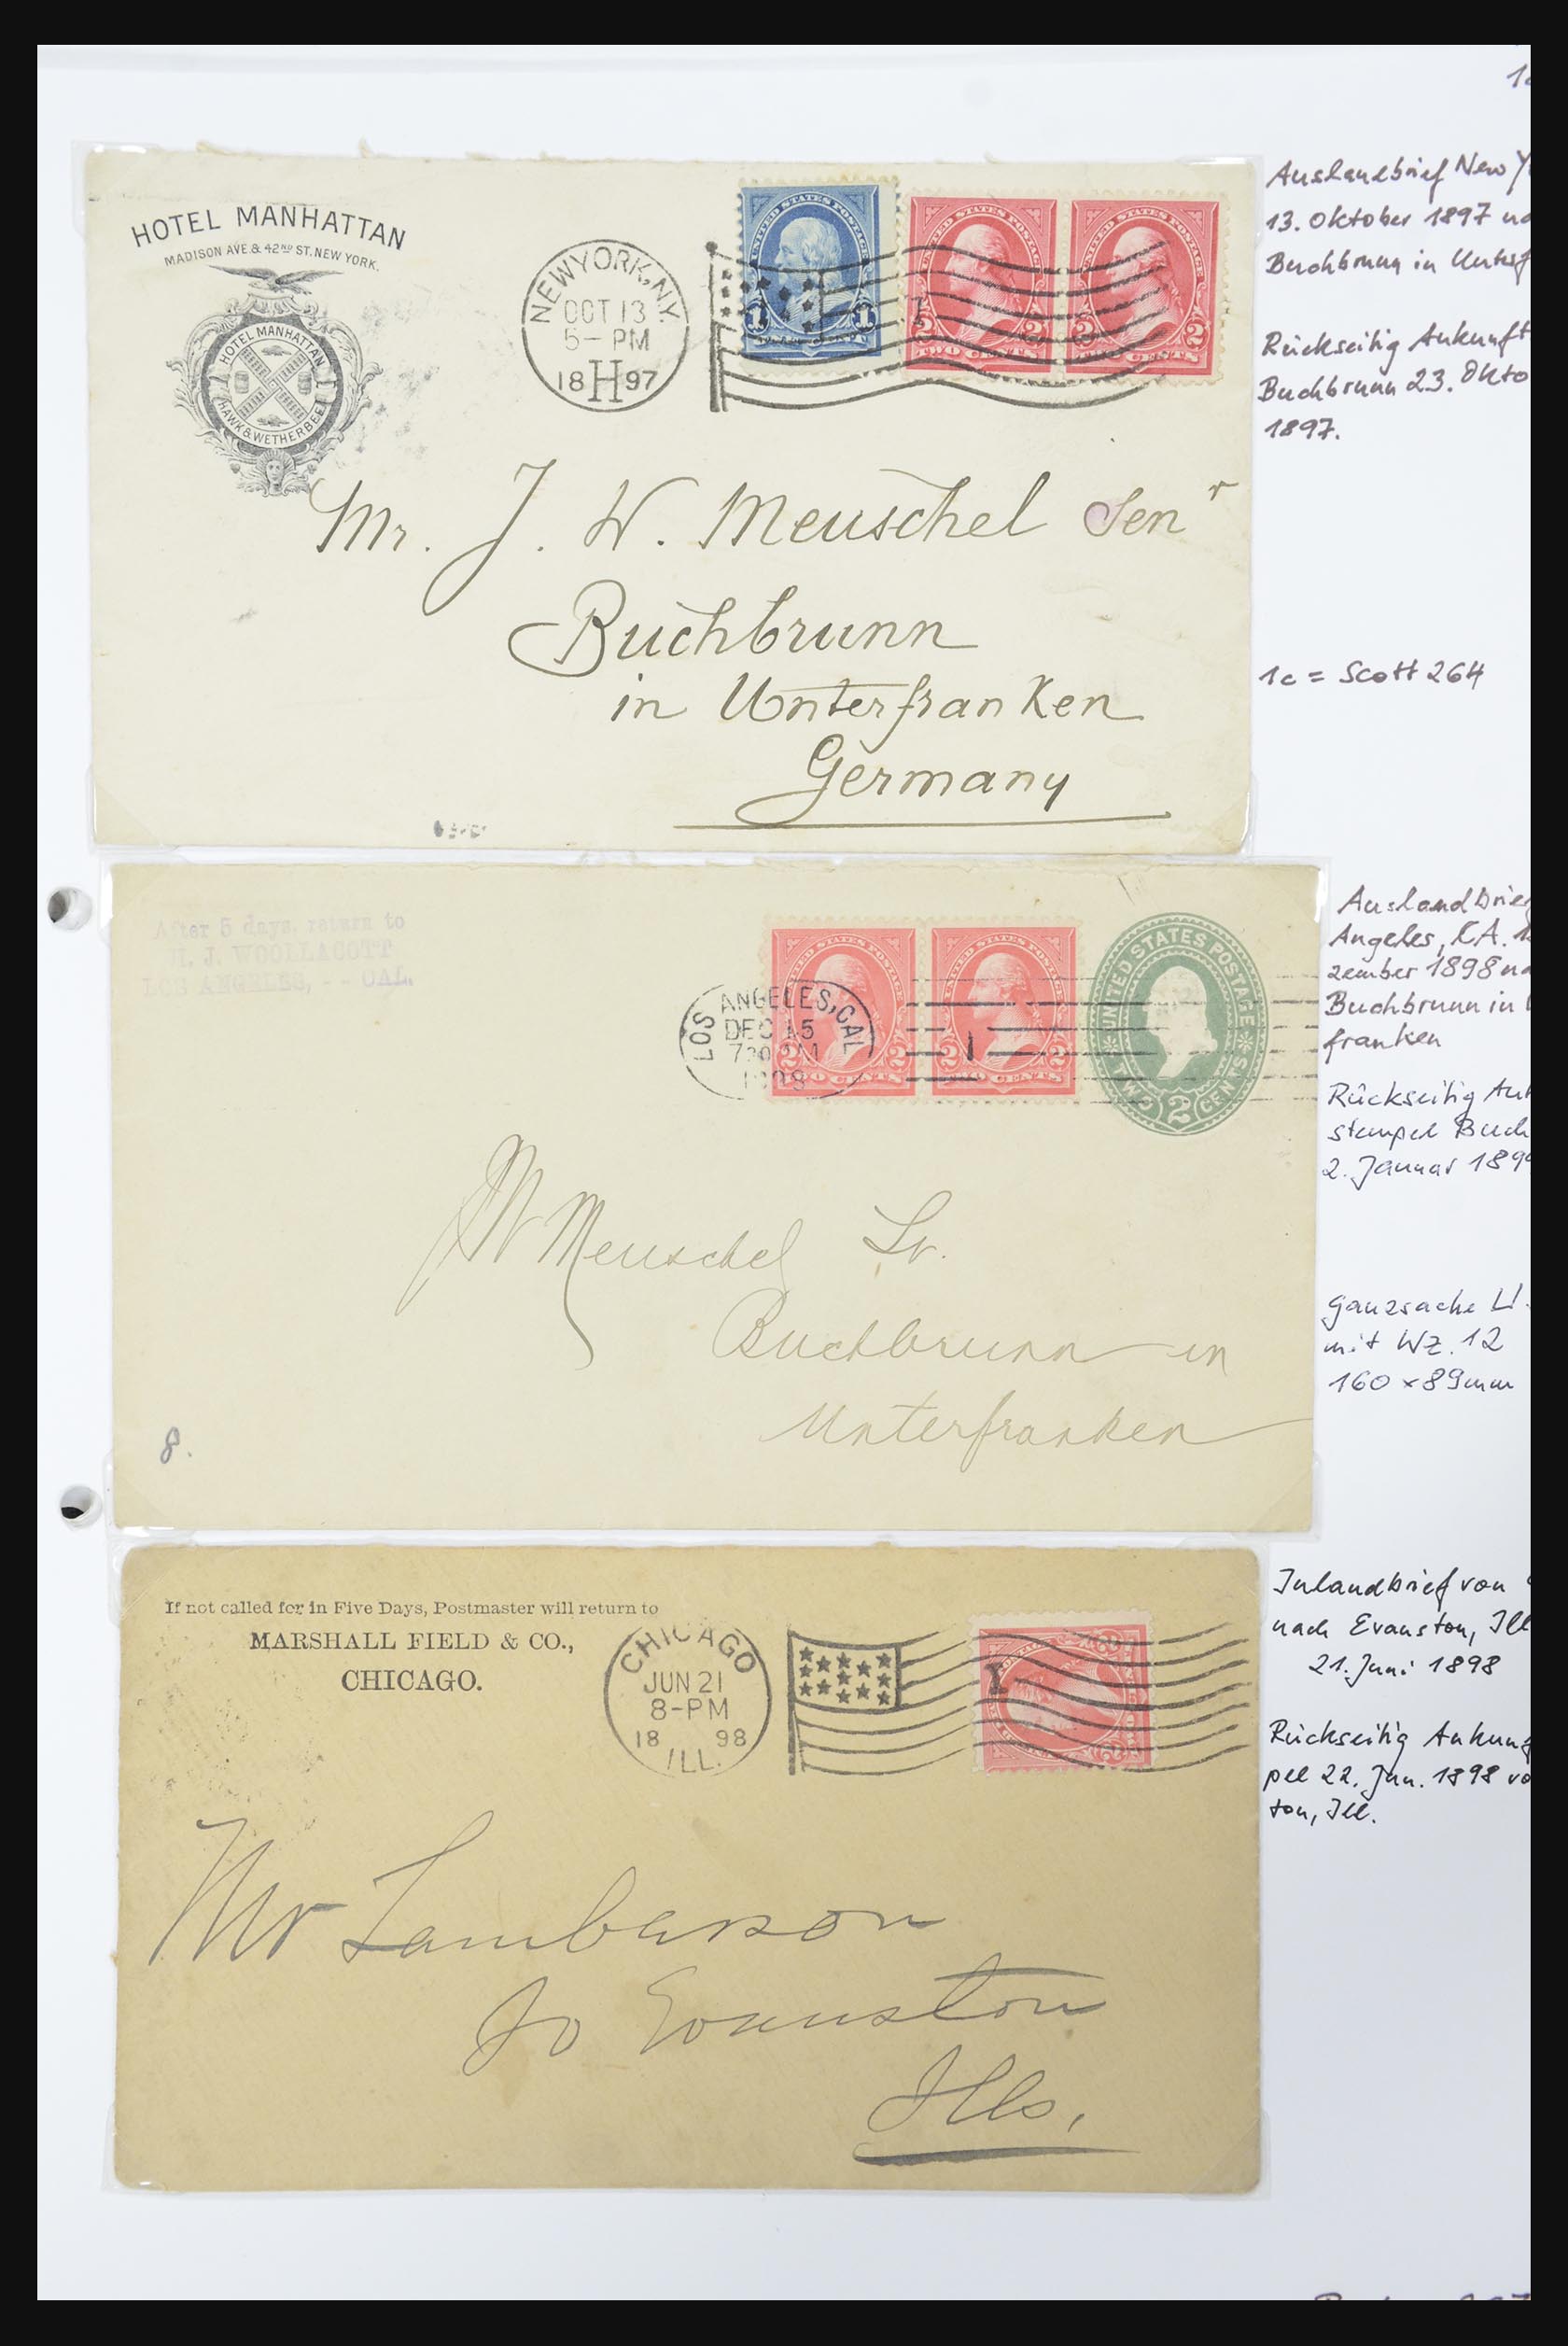 HOTEL MANHATTAN
MADISON AVE. & 42ND ST. NEW YORK.
HOTEL MANHATTAN
HAWK & WETHERBEE
NEW YORK, N.Y.
OCT 13
5-PM
18 H 97
UNITED STATES POSTAGE
1 1
UNITED STATES POSTAGE
2 2
TWO CENTS
UNITED STATES POSTAGE
2 2
TWO CENTS
Mr. J. W. Meuschel Senr
Buchbrunn
in Unterfranken
Germany
Auslandbrief New Y
13. Oktober 1897 na
Buchbrunn in Unterf
Rückseitig Ankunft
Buchbrunn 23. Okto
1897.
1c = Scott 264
After 5 days, return to
H. J. WOOLLACOTT
LOS ANGELES, - - CAL.
LOS ANGELES, CAL
DEC 15
730 AM
1898
UNITED STATES POSTAGE
2 2
TWO CENTS
1
UNITED STATES POSTAGE
2 2
TWO CENTS
UNITED STATES POSTAGE
TWO 2 CENTS
JW Meuschel Sr.
Buchbrunn in
Unterfranken
8.
Auslandbrie
Angeles, CA. 1
zember 1898 na
Buchbrunn in
franken
Rückseitig Ank
stempel Buch
2. Januar 189
Ganzsache U
mit Wz. 12
160 x 89mm
If not called for in Five Days, Postmaster will return to
MARSHALL FIELD & CO.,
CHICAGO.
CHICAGO
JUN 21
8-PM
18 98
ILL.
1
Mr Lamberson
So Evanston
Ills.
Inlandbrief von
nach Evanston, Ill
21. Juni 1898
Rückseitig Ankun
pel 22. Jun. 1898 vo
ton, Ill.